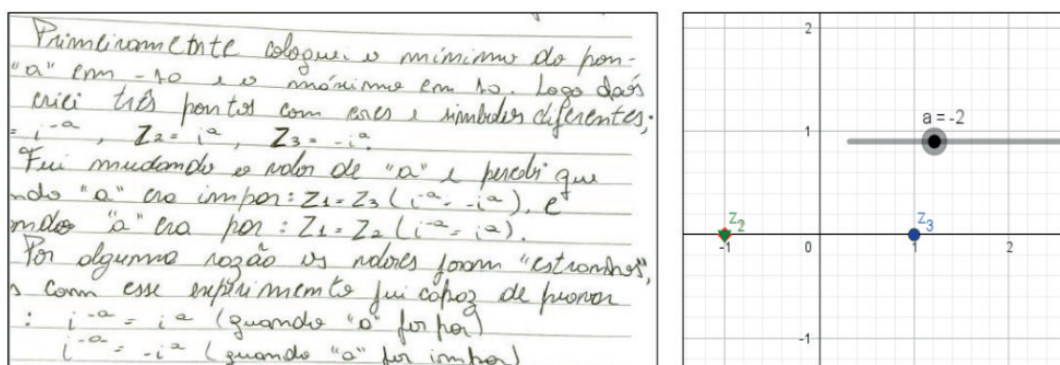 Primeiramente coloquei o mínimo do pon-
"a" em -10 e o máximo em 10. Logo após
criei três pontos com cores e símbolos diferentes;
= i⁻ᵃ, Z₂ = iᵃ, Z₃ = -iᵃ.
Fui mudando o valor de "a" e percebi que
ndo "a" era impar: Z₁ = Z₃ (i⁻ᵃ = -iᵃ), e
ando "a" era par: Z₁ = Z₂ (i⁻ᵃ = iᵃ).
Por alguma razão os valores foram "estranhos",
s com esse experimento fui capaz de provar
: i⁻ᵃ = iᵃ (quando "a" for par)
i⁻ᵃ = -iᵃ (quando "a" for impar)
2
a = -2
1
Z₂
Z₃
-1 0 1 2
-1